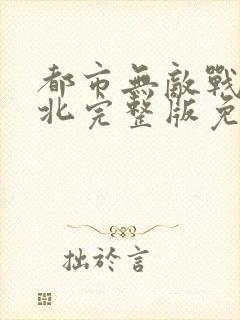 都市無敵戰
北完整版免
拙於言